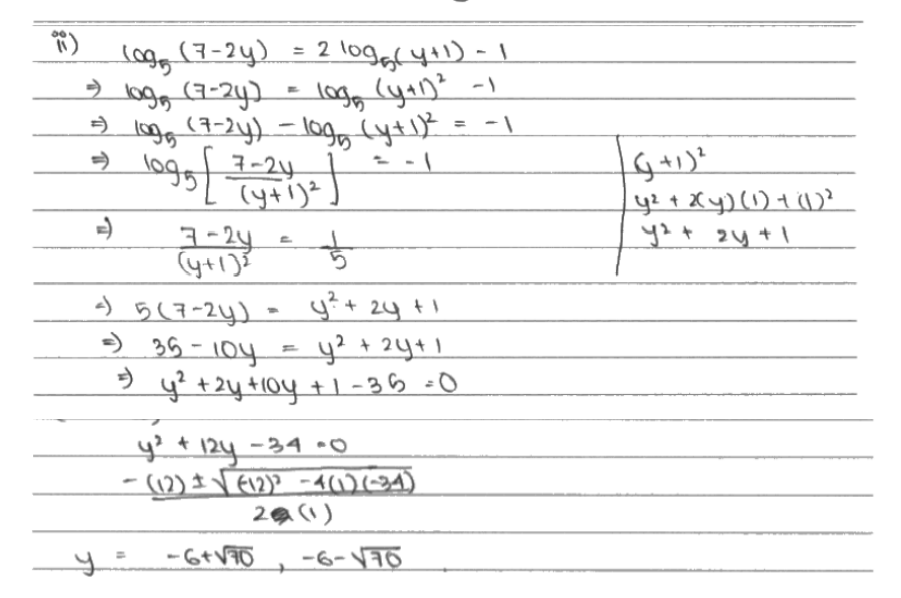 ii) log₅ (7-2y) = 2 log₅(y+1) - 1
⇒ log₅ (7-2y) = log₅ (y+1)² -1
⇒ log₅ (7-2y) - log₅ (y+1)² = -1
⇒ log₅ [ 7-2y / (y+1)² ] = -1
(y+1)²
y² + 2(y)(1) + (1)²
y² + 2y + 1
⇒ 7-2y / (y+1)² = 1 / 5
⇒ 5(7-2y) = y² + 2y + 1
⇒ 35 - 10y = y² + 2y + 1
⇒ y² + 2y + 10y + 1 - 35 = 0
y² + 12y - 34 = 0
-(12) ± √(-12)² - 4(1)(-34)
2(1)
y = -6+√70 , -6-√70